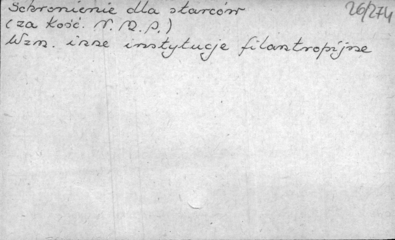 Schronienie dla starców
26/274
(za Kość. N. M. P.)
Wzn. inne instytucje filantropijne